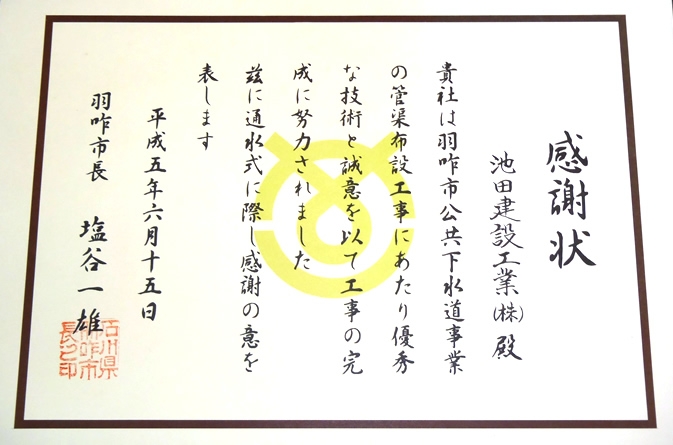 感謝状
池田建設工業㈱殿
貴社は羽咋市公共下水道事業
の管渠布設工事にあたり優秀
な技術と誠意を以て工事の完
成に努力されました
茲に通水式に際し感謝の意を
表します
平成五年六月十五日
羽咋市長 塩谷一雄
石川県
羽咋市
長之印